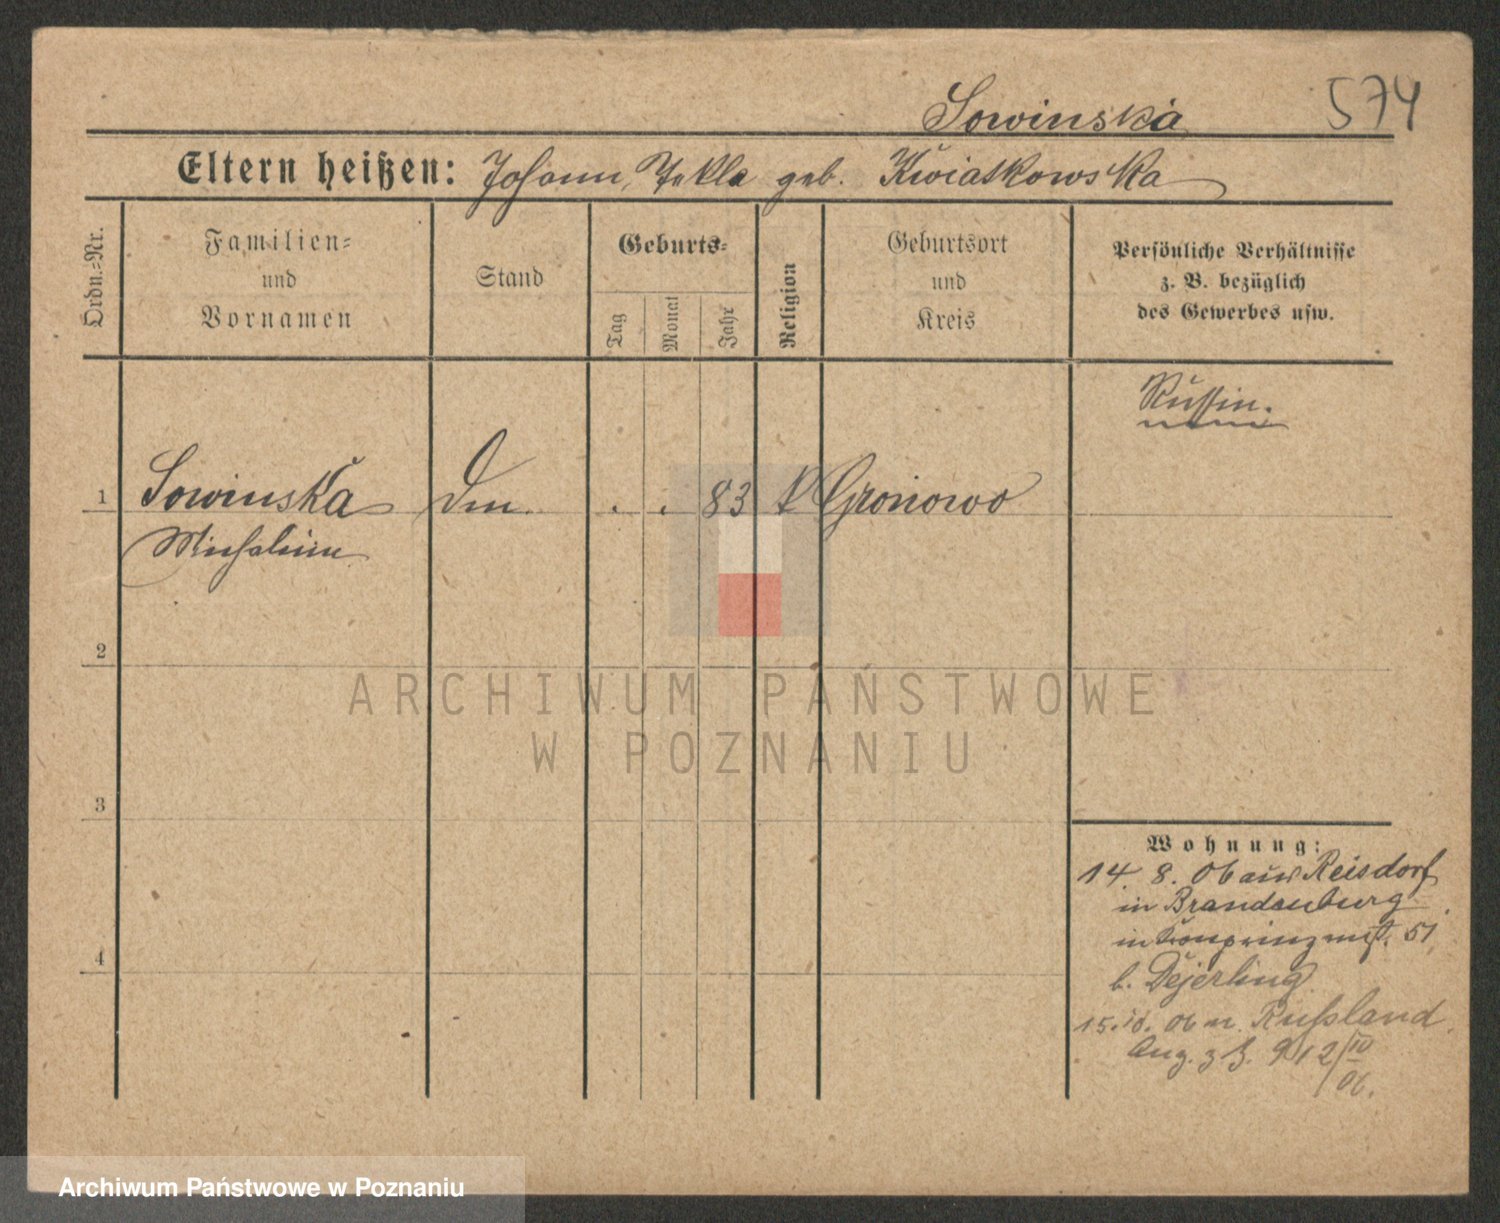 Sowinska 574
Eltern heißen: Johann, Tekla geb. Kwiatkowska
Ordn.-Nr.
Familien-
und
Vornamen
Stand
Geburts-
Tag
Monat
Jahr
Religion
Geburtsort
und
Kreis
Persönliche Verhältnisse
z. B. bezüglich
des Gewerbes usw.
Russin.
1 Sowinska . . 83 k Gronowo
Michalina
2
3
4
Wohnung:
14. 8. 06 aus Reisdorf
in Brandenburg
in Kronprinzenst. 51
b. Dejerling
15. 10. 06 n. Russland
Ang. z. B. 912/10
06.
ARCHIWUM PAŃSTWOWE
W POZNANIU
Archiwum Państwowe w Poznaniu